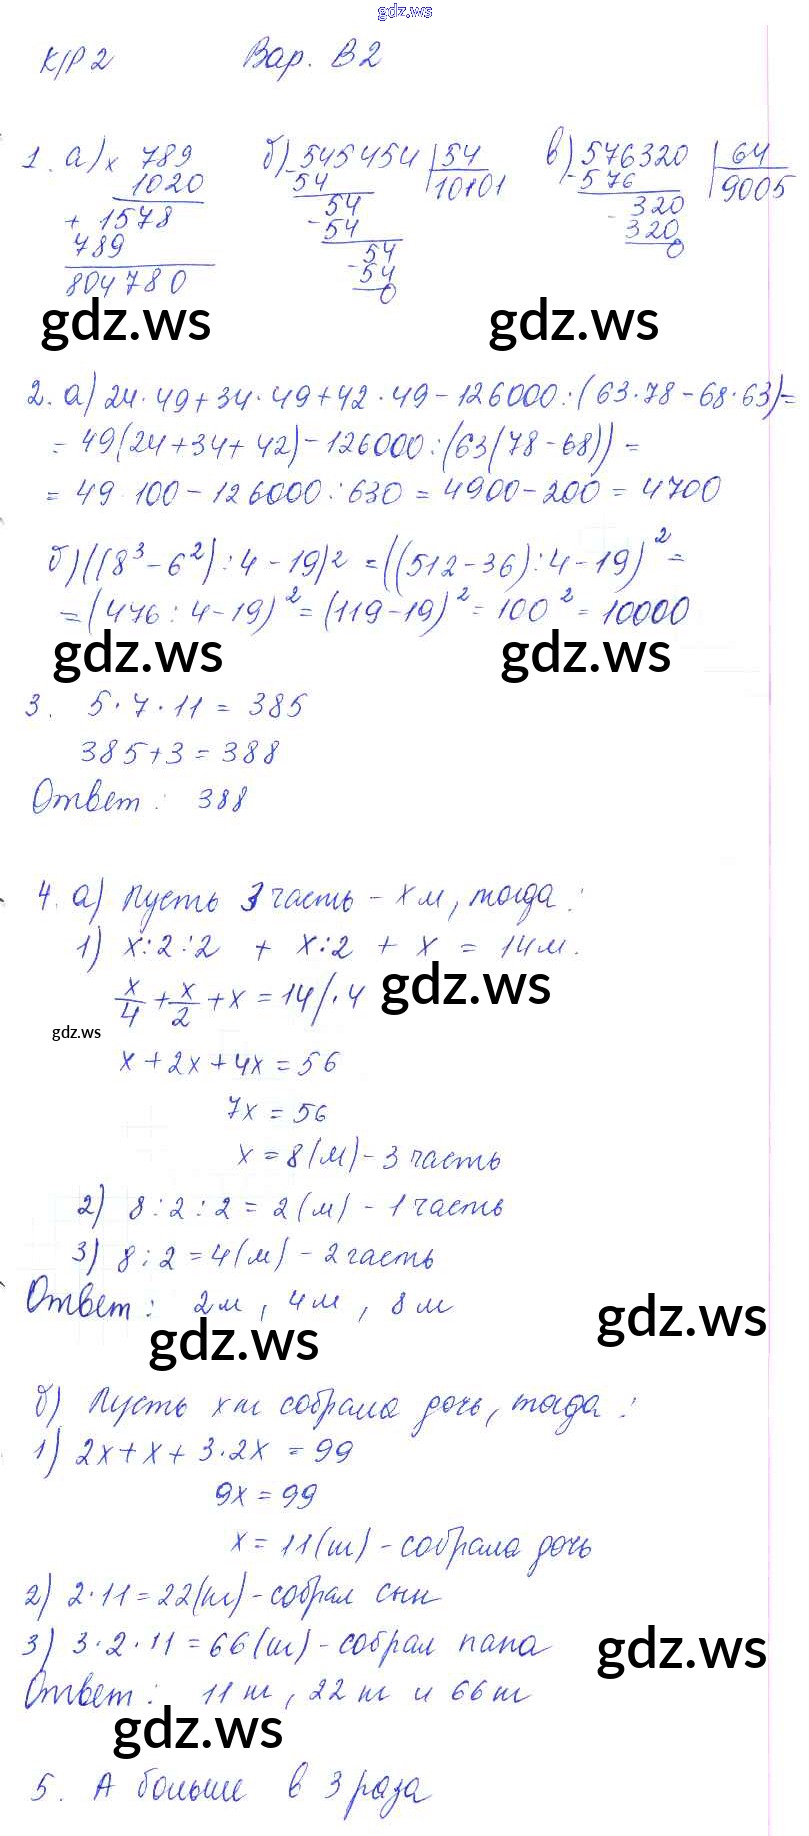 gdz.ws
К/Р 2 Вар. В2
1. а) × 789 б) 545454 | 54 в) 576320 | 64
1020 - 54 10101 - 576 9005
+ 1578 54 320
789 - 54 - 320
804780 54 0
- 54
0
gdz.ws gdz.ws
2. а) 24·49+34·49+42·49-126000:(63·78-68·63)=
= 49(24+34+42)-126000:(63(78-68)) =
= 49·100-126000:630 = 4900-200 = 4700
б) ((8³-6²):4-19)2 = ((512-36):4-19)² =
= (476:4-19)² = (119-19)² = 100² = 10000
gdz.ws gdz.ws
3. 5·7·11 = 385
385+3 = 388
Ответ: 388
4. а) Пусть 3 часть - х м, тогда:
1) х:2:2 + х:2 + х = 14м.
gdz.ws
х/4 + х/2 + х = 14 /·4
gdz.ws
х+2х+4х = 56
7х = 56
х = 8(м) - 3 часть
2) 8:2:2 = 2(м) - 1 часть
3) 8:2 = 4(м) - 2 часть
Ответ: 2м, 4м, 8м
gdz.ws gdz.ws
б) Пусть х ш собрала дочь, тогда:
1) 2х+х+3·2х = 99
9х = 99
х = 11(ш) - собрала дочь
2) 2·11 = 22(ш) - собрал сын
3) 3·2·11 = 66(ш) - собрал папа
gdz.ws
Ответ: 11 ш, 22 ш и 66 ш
gdz.ws
5. А больше в 3 раза
gdz.ws